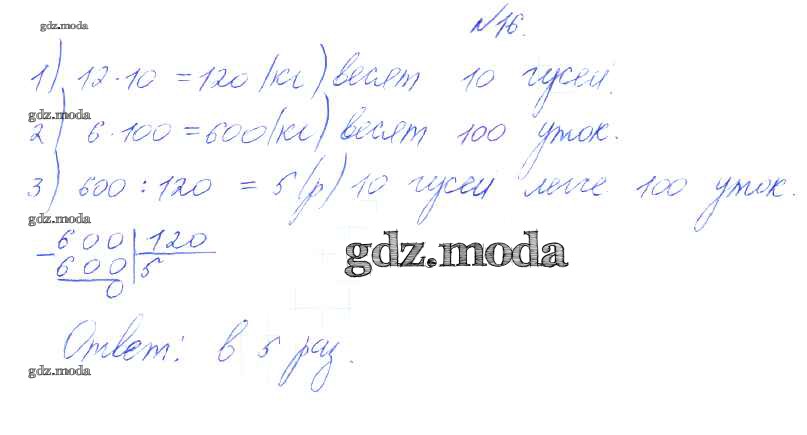 gdz.moda
№16.
1) 12·10 = 120 (кг) весят 10 гусей.
gdz.moda
2) 6·100 = 600 (кг) весят 100 уток.
3) 600 : 120 = 5 (р) 10 гусей легче 100 уток.
gdz.moda
600 | 120
- 600 | 5
0
gdz.moda
Ответ: в 5 раз.
gdz.moda